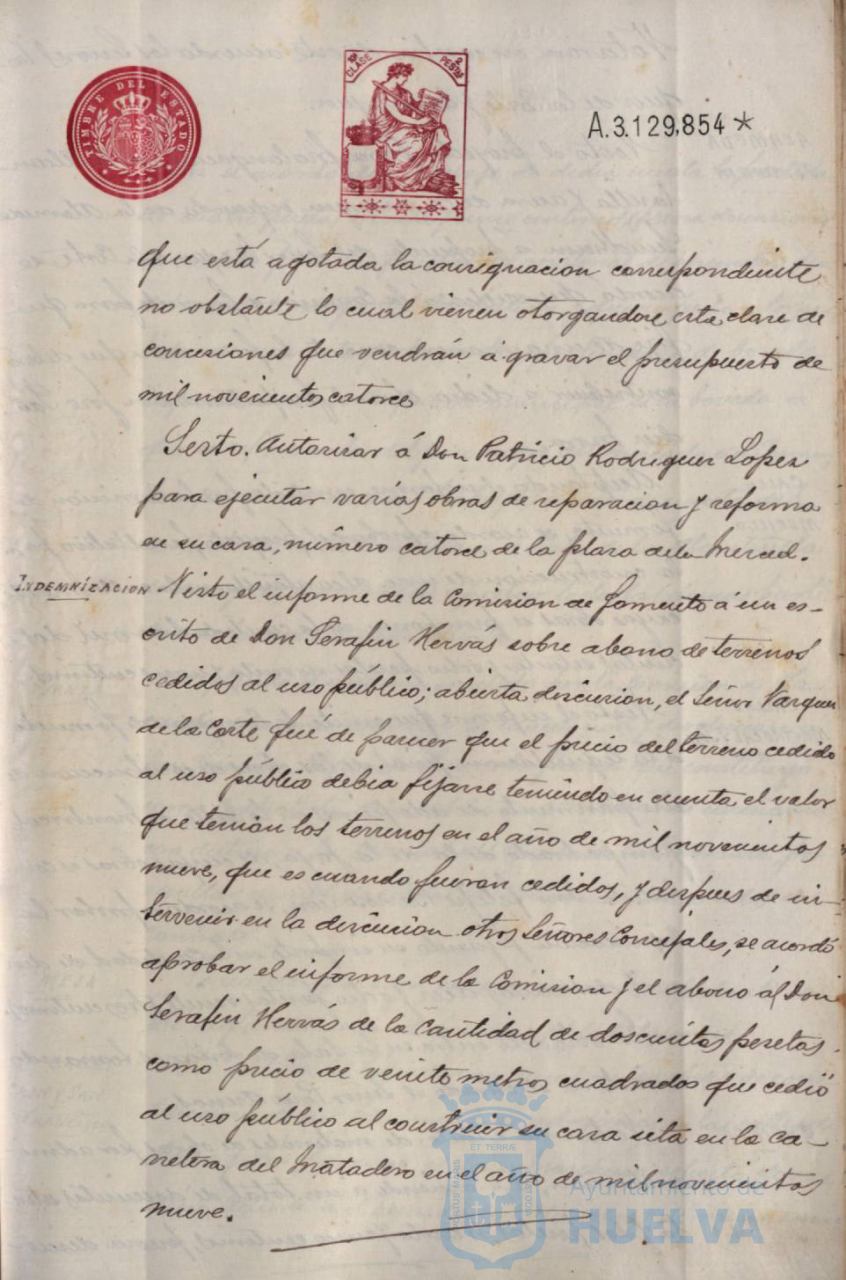 TIMBRE DEL ESTADO
10ª CLASE
2 PESTAS
A.3.129,854*
que está agotada la consignacion correspondiente
no obstante lo cual vienen otorgandose esta clase de
concesiones que vendrán á gravar el presupuesto de
mil novecientos catorce
Sesto. Autorisar á Don Patricio Rodriguez Lopez
para ejecutar varias obras de reparacion y reforma
en su casa, número catorce de la plaza de la Merced.
INDEMNIZACION
Visto el informe de la Comision de Fomento á un es-
crito de Don Serafin Hervás sobre abono de terrenos
cedidos al uso público; abierta discusion, el Señor Vazquez
de la Corte fué de parecer que el precio del terreno cedido
al uso público debia fijarse teniendo en cuenta el valor
que tenian los terrenos en el año de mil novecientos
nueve, que es cuando fueron cedidos, y despues de in-
tervenir en la discusion otros Señores Concejales, se acordó
aprobar el informe de la Comision y el abono ál Don
Serafin Hervás de la cantidad de doscientas pesetas
como precio de veinte metros cuadrados que cedió
al uso público al construir su casa sita en la ca-
rretera del Matadero en el año de mil novecientos
nueve.
Ayuntamiento de
HUELVA